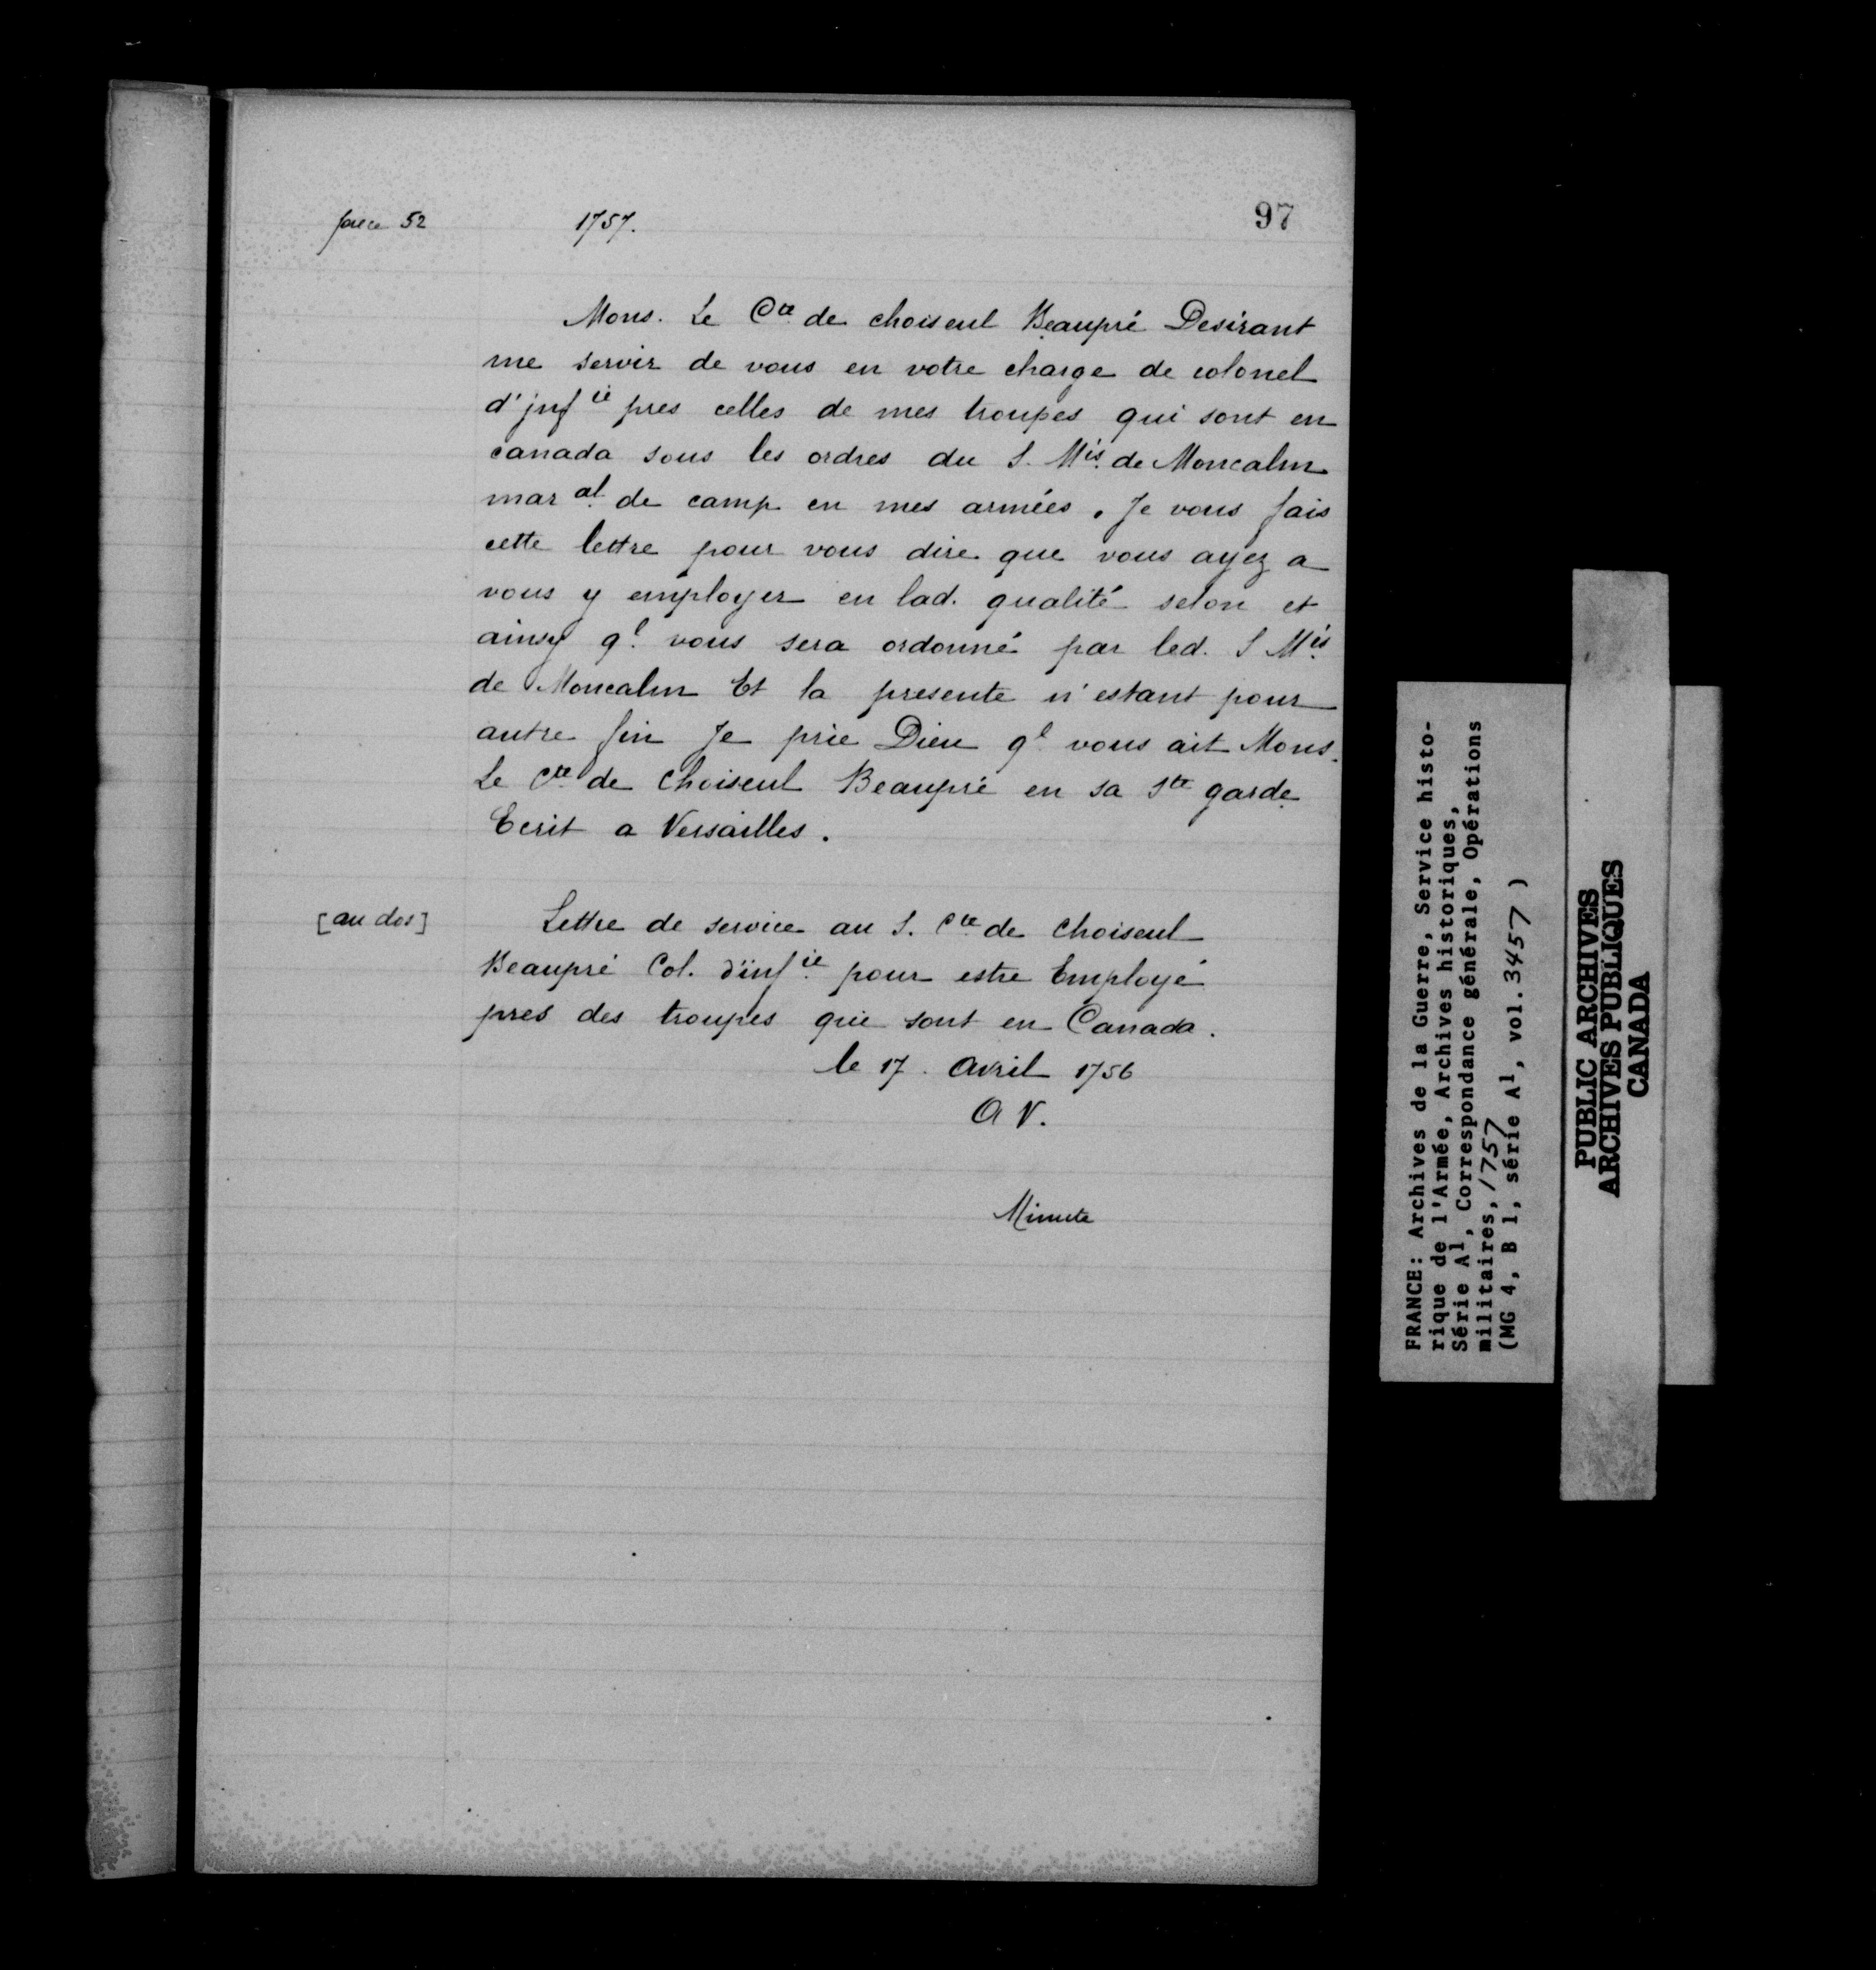 piece 52
1757.
97
Mons. Le Cte de choiseul Beaupré Desirant
me servir de vous en votre charge de colonel
d'jnfie pres celles de mes troupes qui sont en
canada sous les ordres du S. Mis. de Moncalm
maral. de camp en mes armées. Je vous fais
cette lettre pour vous dire que vous ayez a
vous y employer en lad. qualité selon et
ainsy ql. vous sera ordonné par led. S Mis.
de Moncalm Et la presente n'estant pour
autre fin Je prie Dieu ql vous ait Mons.
Le Cte de Choiseul Beaupré en sa Ste garde
Ecrit a Versailles.
[au dos]
Lettre de service au S. Cte de Choiseul
Beaupré Col. d'infie. pour estre Employé
pres des troupes qui sont en Canada.
le 17. Avril 1756
A V.
Minute
FRANCE: Archives de la Guerre, Service histo-
rique de l'Armée, Archives historiques,
Série A1, Correspondance générale, Opérations
militaires, 1757
(MG 4, B 1, série A1, vol. 3457)
PUBLIC ARCHIVES
ARCHIVES PUBLIQUES
CANADA